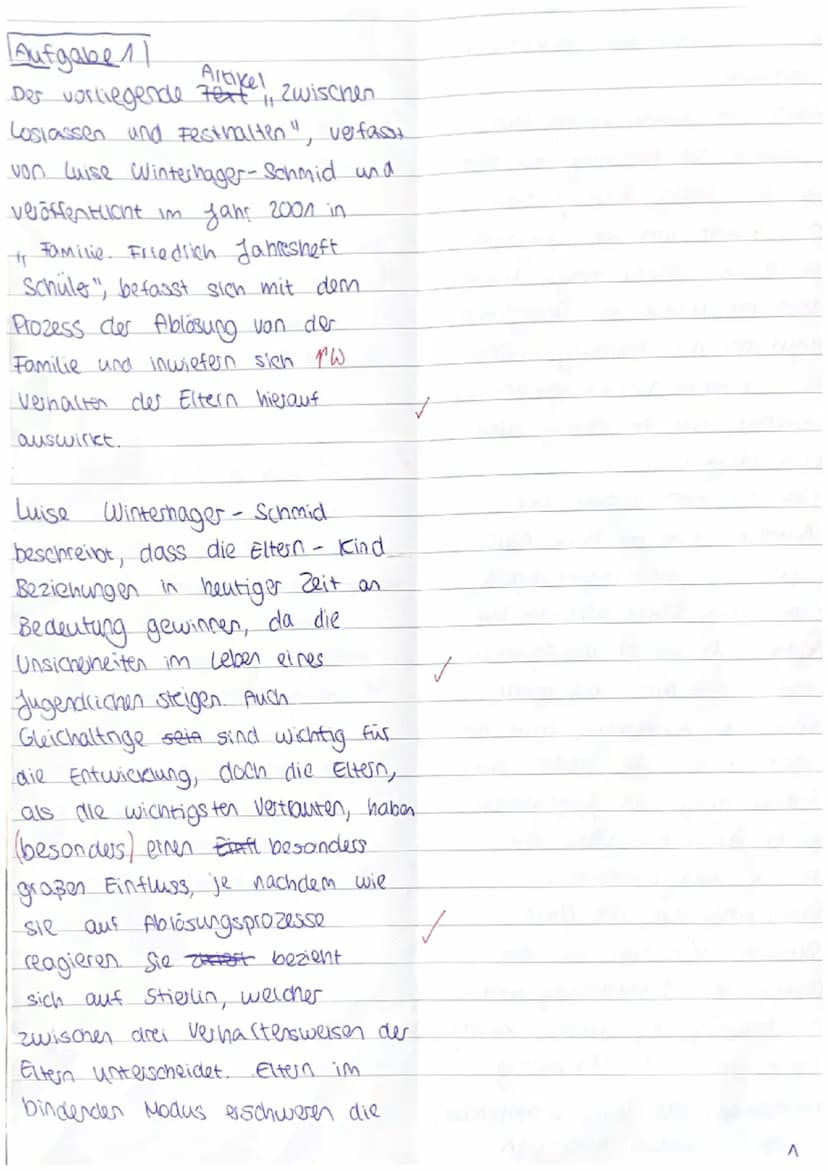 Aufgabe 1
Artikel
Der vorliegende Text „Zwischen
Loslassen und Festhalten", verfasst
von Luise Winterhager-Schmid und
veröffentlicht im Jahr 2001 in
„Familie. Friedrich Jahresheft
Schüler", befasst sich mit dem
Prozess der Ablösung von der
Familie und inwiefern sich rW
Verhalten der Eltern hierauf ✓
auswirkt.
Luise Winterhager-Schmid
beschreibt, dass die Eltern-Kind
Beziehungen in heutiger Zeit an
Bedeutung gewinnen, da die
Unsicherheiten im Leben eines ✓
Jugendlichen steigen. Auch
Gleichaltrige sein sind wichtig für
die Entwicklung, doch die Eltern,
als die wichtigsten Vertrauten, haben
(besonders) einen Einfl besonders
großen Einfluss, je nachdem wie
sie auf Ablösungsprozesse ✓
reagieren. Sie bezieht
sich auf Stierlin, welcher
zwischen drei Verhaltensweisen der
Eltern unterscheidet. Eltern im
bindenden Modus erschweren die
1